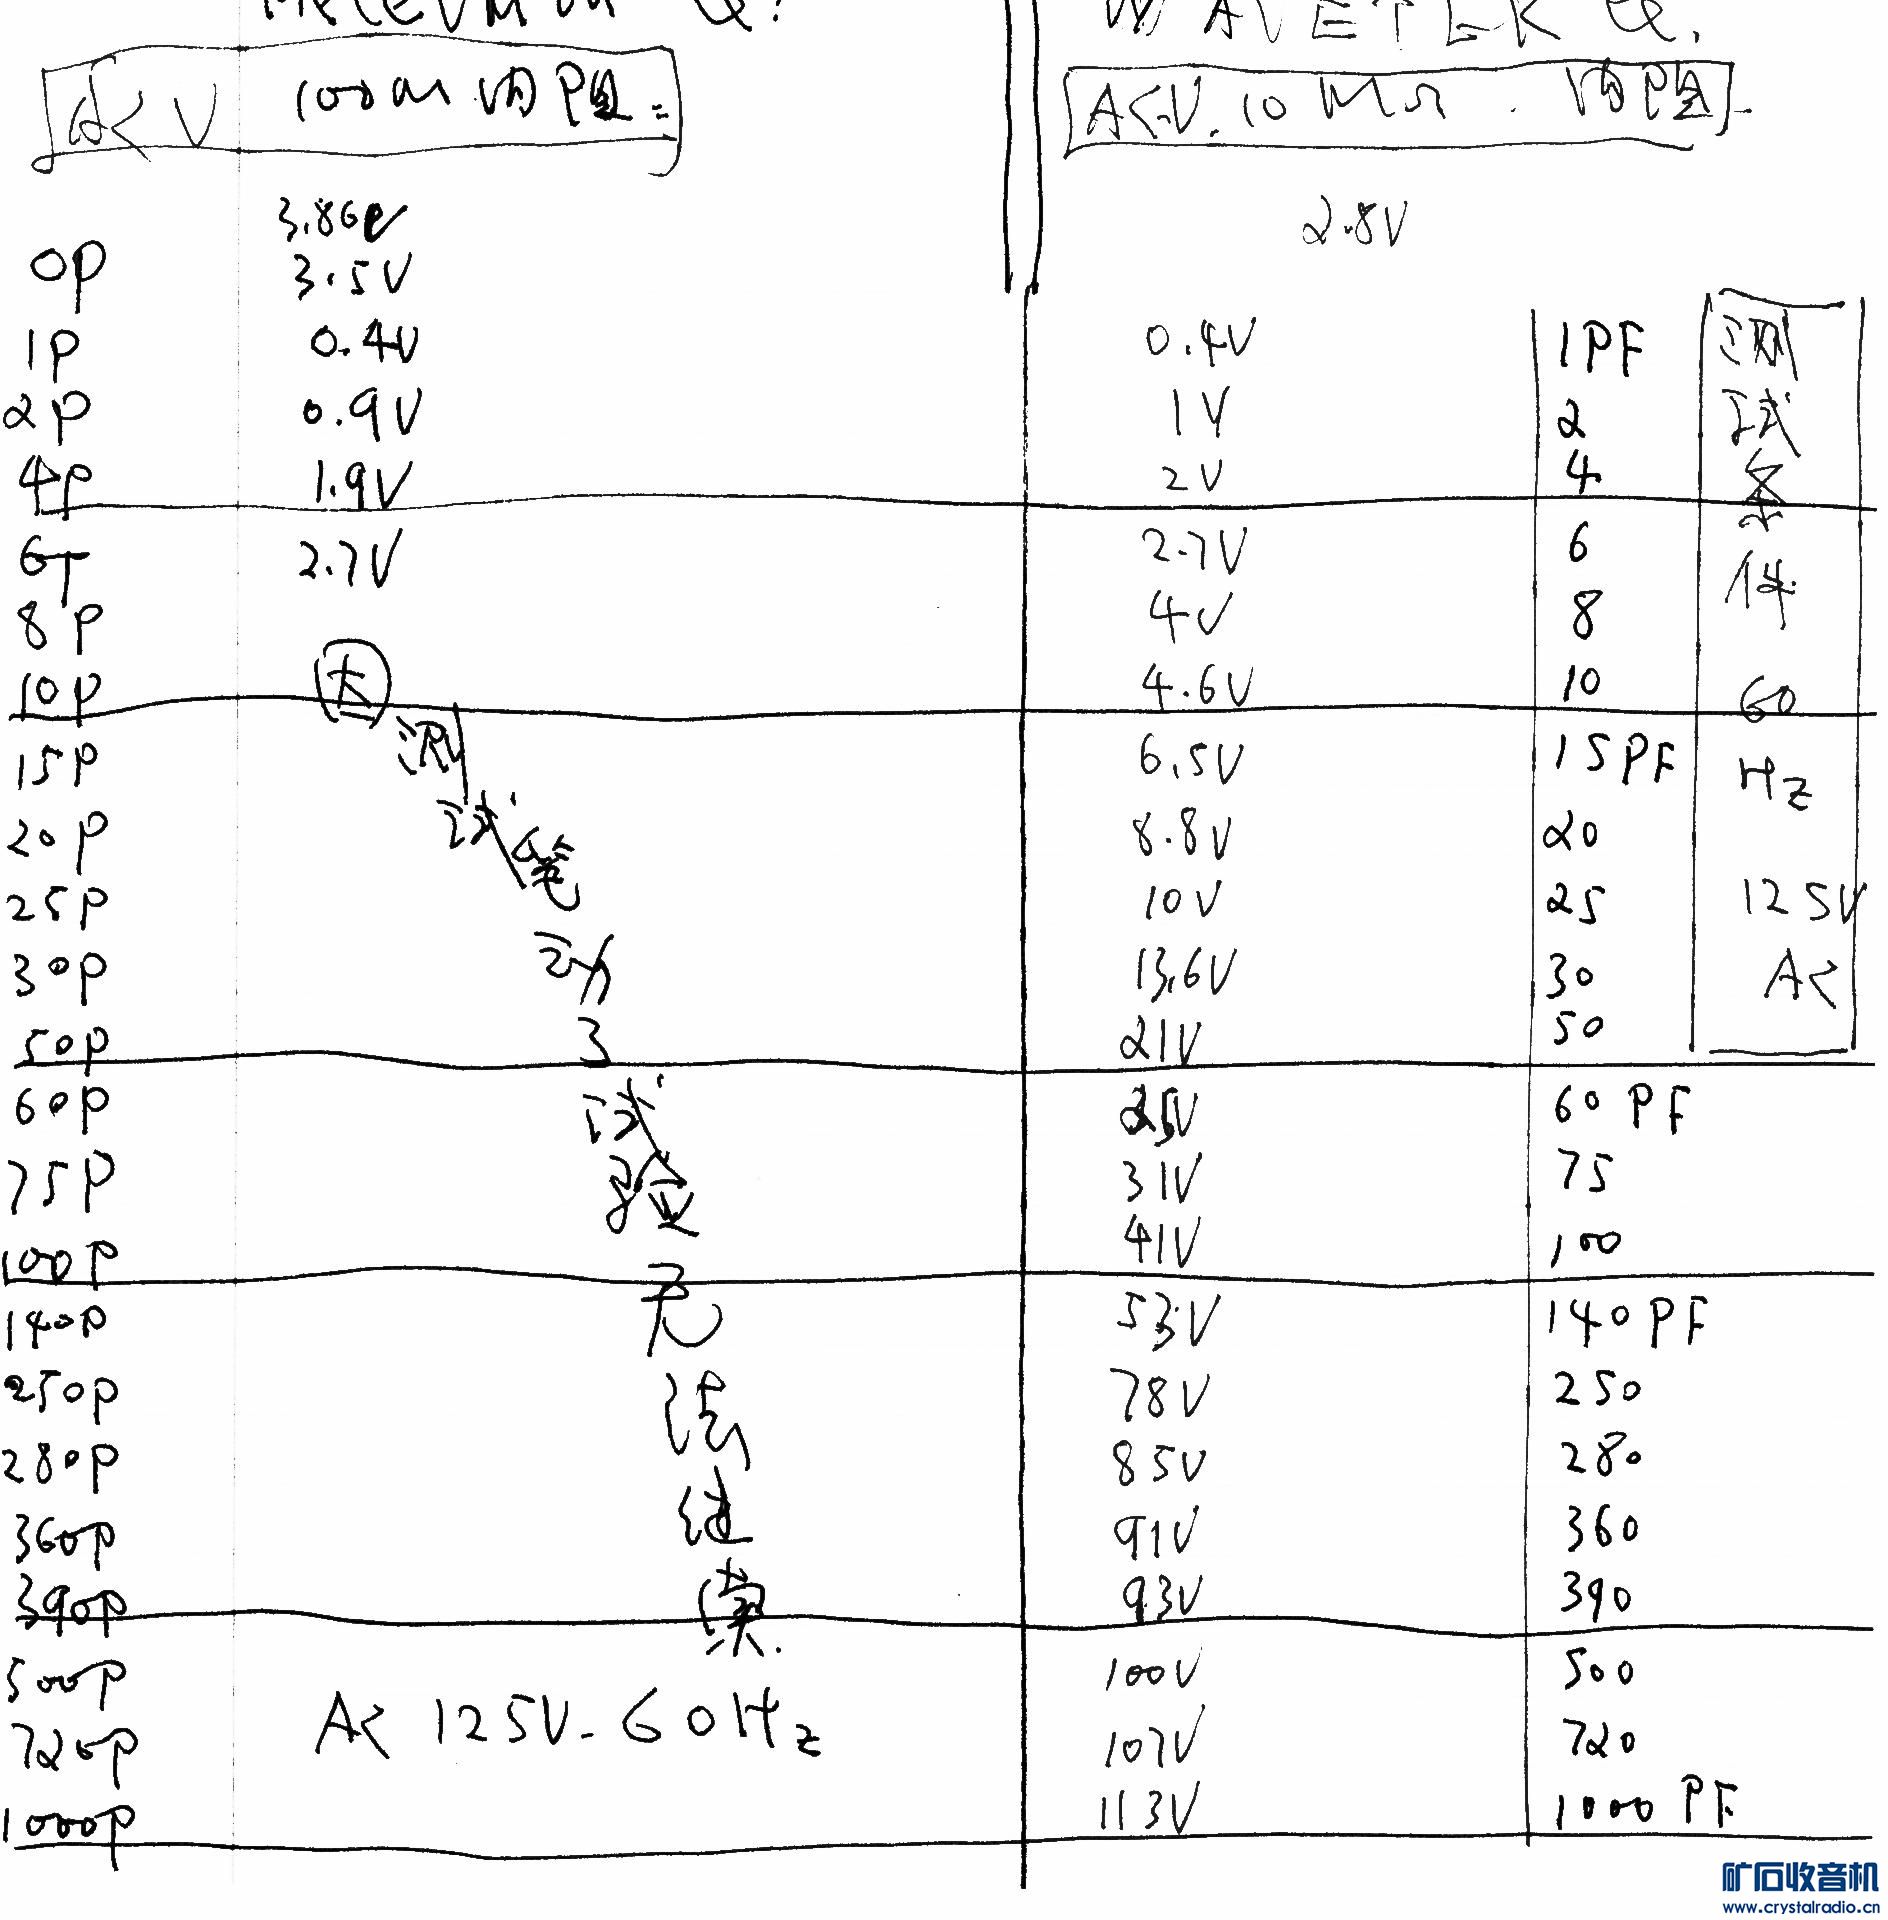 WAVETEK
ACV 100M 内阻
ACV. 10MΩ. 内阻.
2.8V
0P 3.5V
1P 0.4V 0.4V 1PF
2P 0.9V 1V 2
4P 1.9V 2V 4
6P 2.7V 2.7V 6
8P 4V 8
10P 4.6V 10
15P 6.5V 15PF
20P 8.8V 20
25P 10V 25
30P 13.6V 30
50P 21V 50
60P 60PF
75P 31V 75
100P 41V 100
140P 53V 140PF
250P 78V 250
280P 85V 280
360P 91V 360
390P 93V 390
500P 100V 500
720P 107V 720
1000P 113V 1000PF
测试条件 60Hz 125V AC
测试笔
无法
AC 125V-60Hz
矿石收音机
www.crystalradio.cn